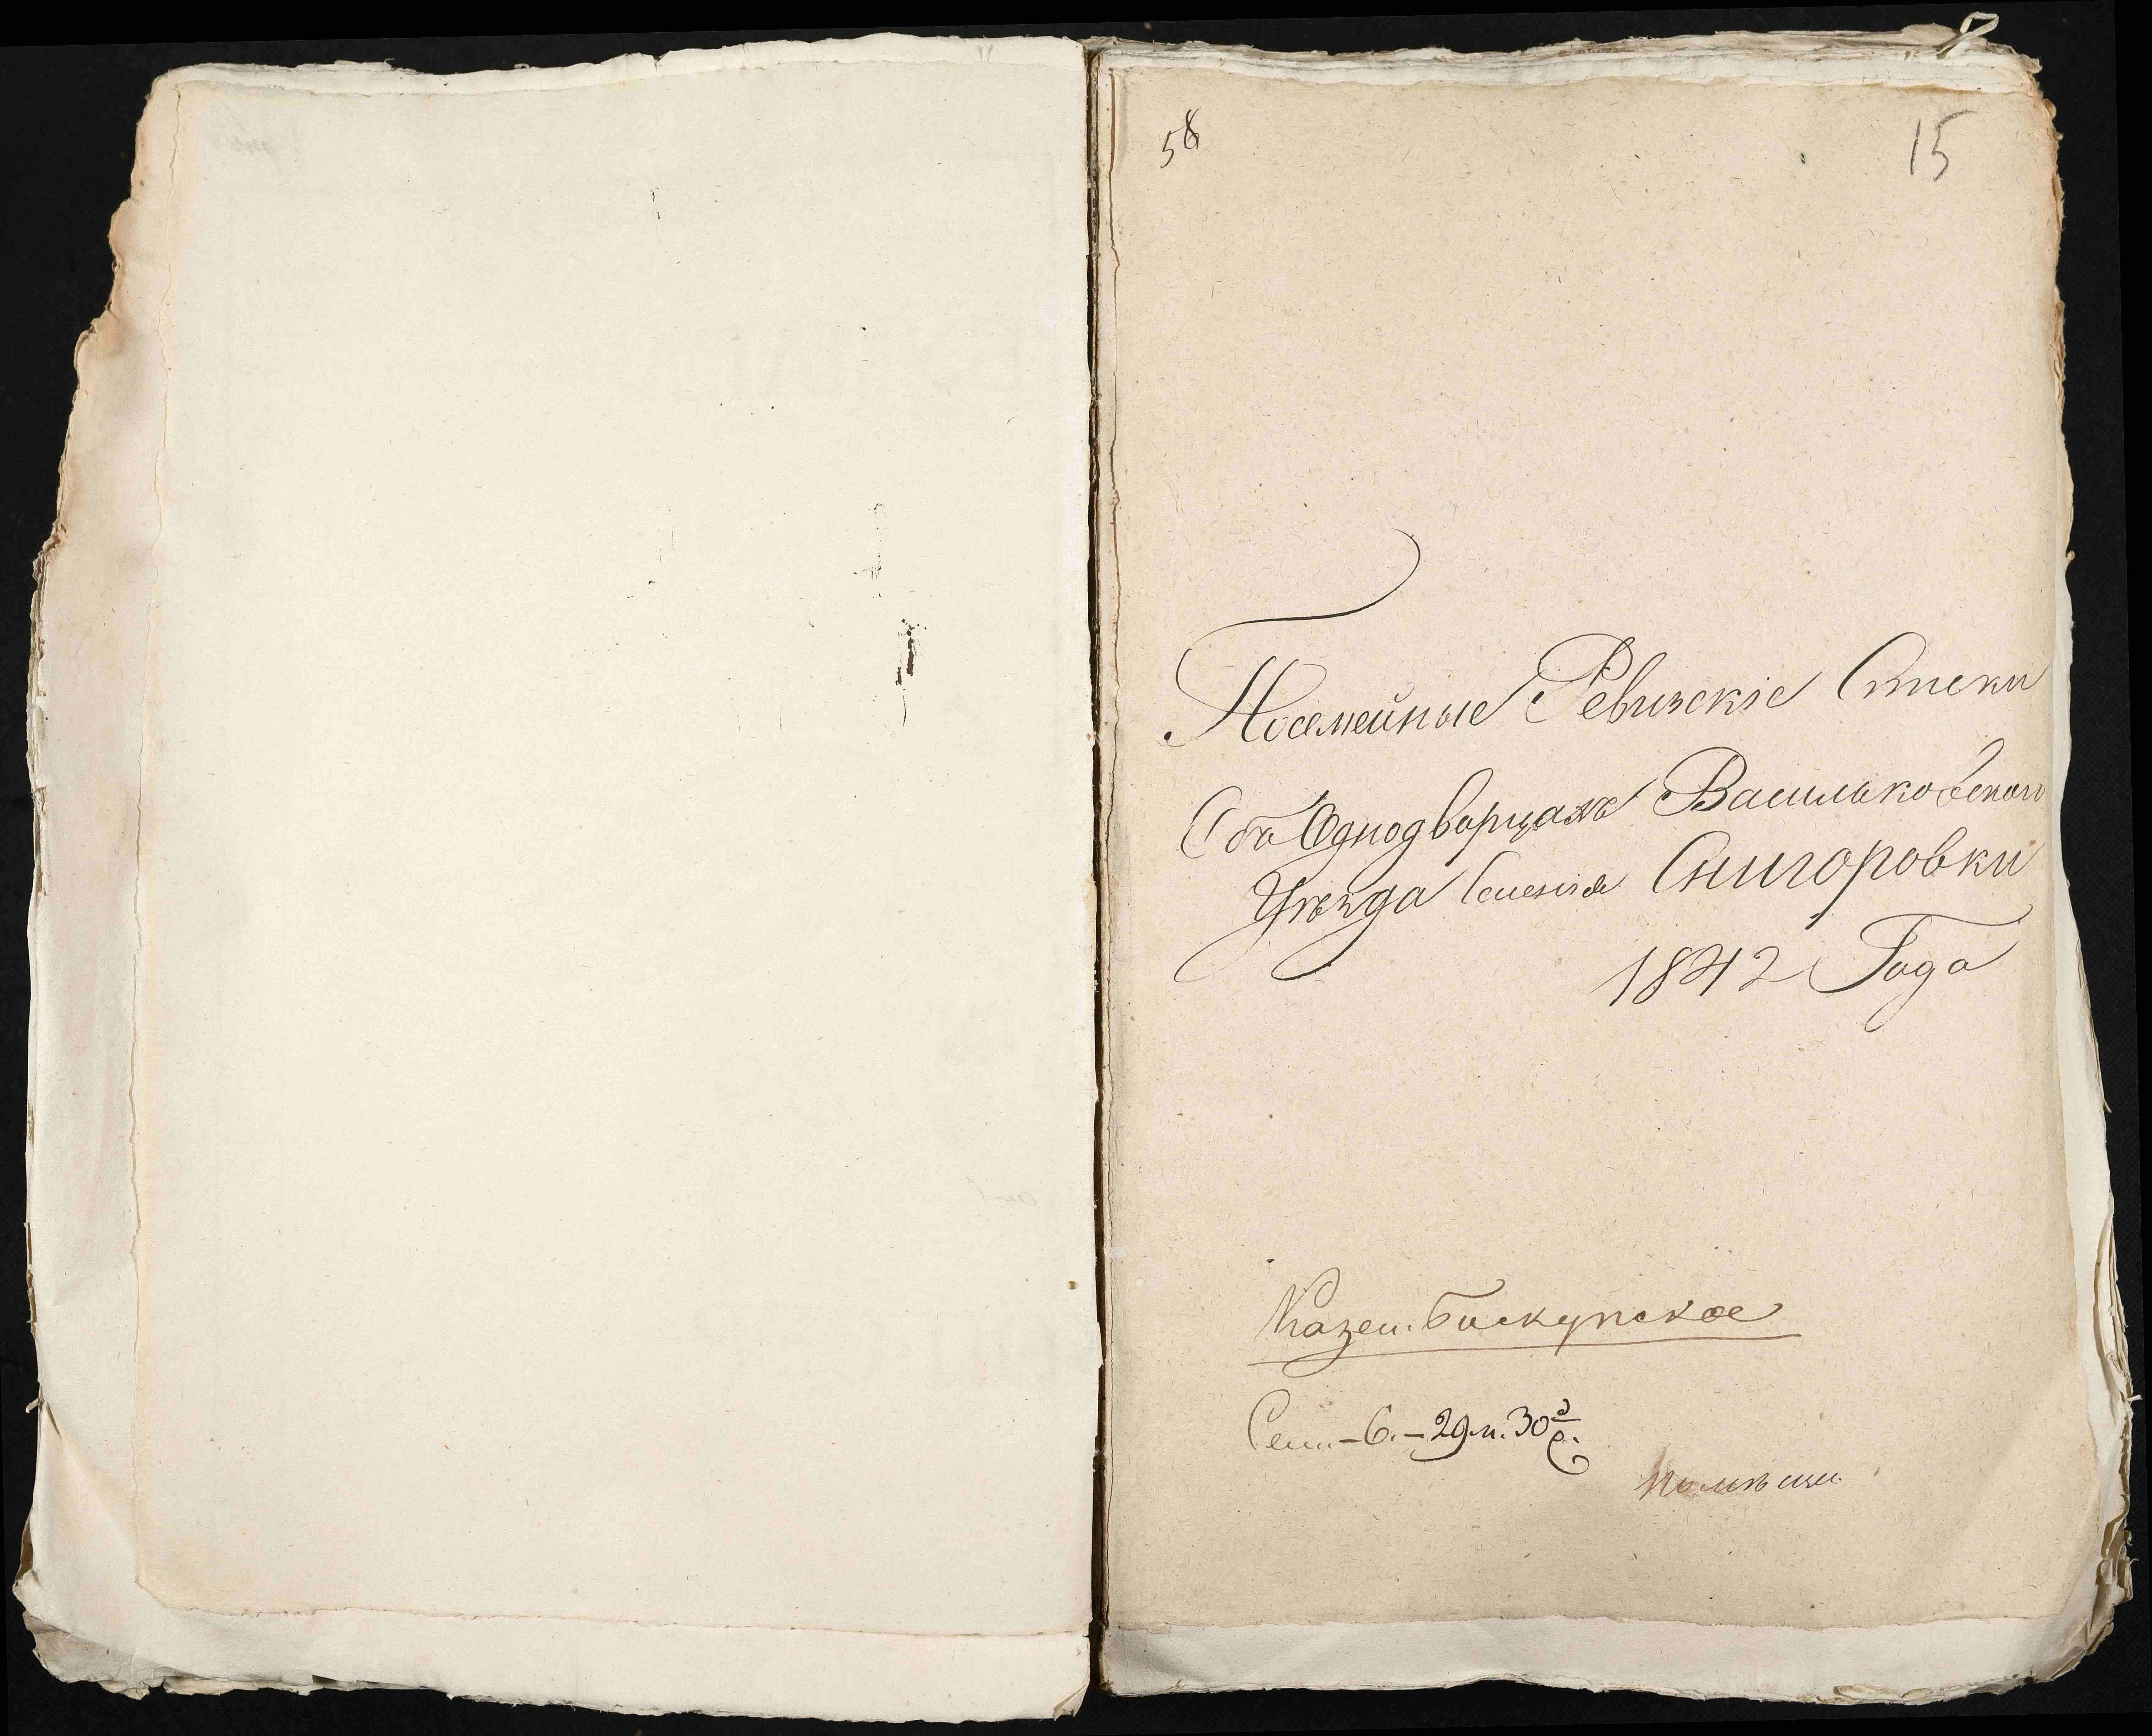 58
15
Посемейные Ревизскіе Списки
Объ Однодворцахъ Васильковскаго
Уѣзда Селенія Снигоровки
1842 Года
Казен. Бискупское
Сем. – 6. – 29 м. 30
помѣщи.